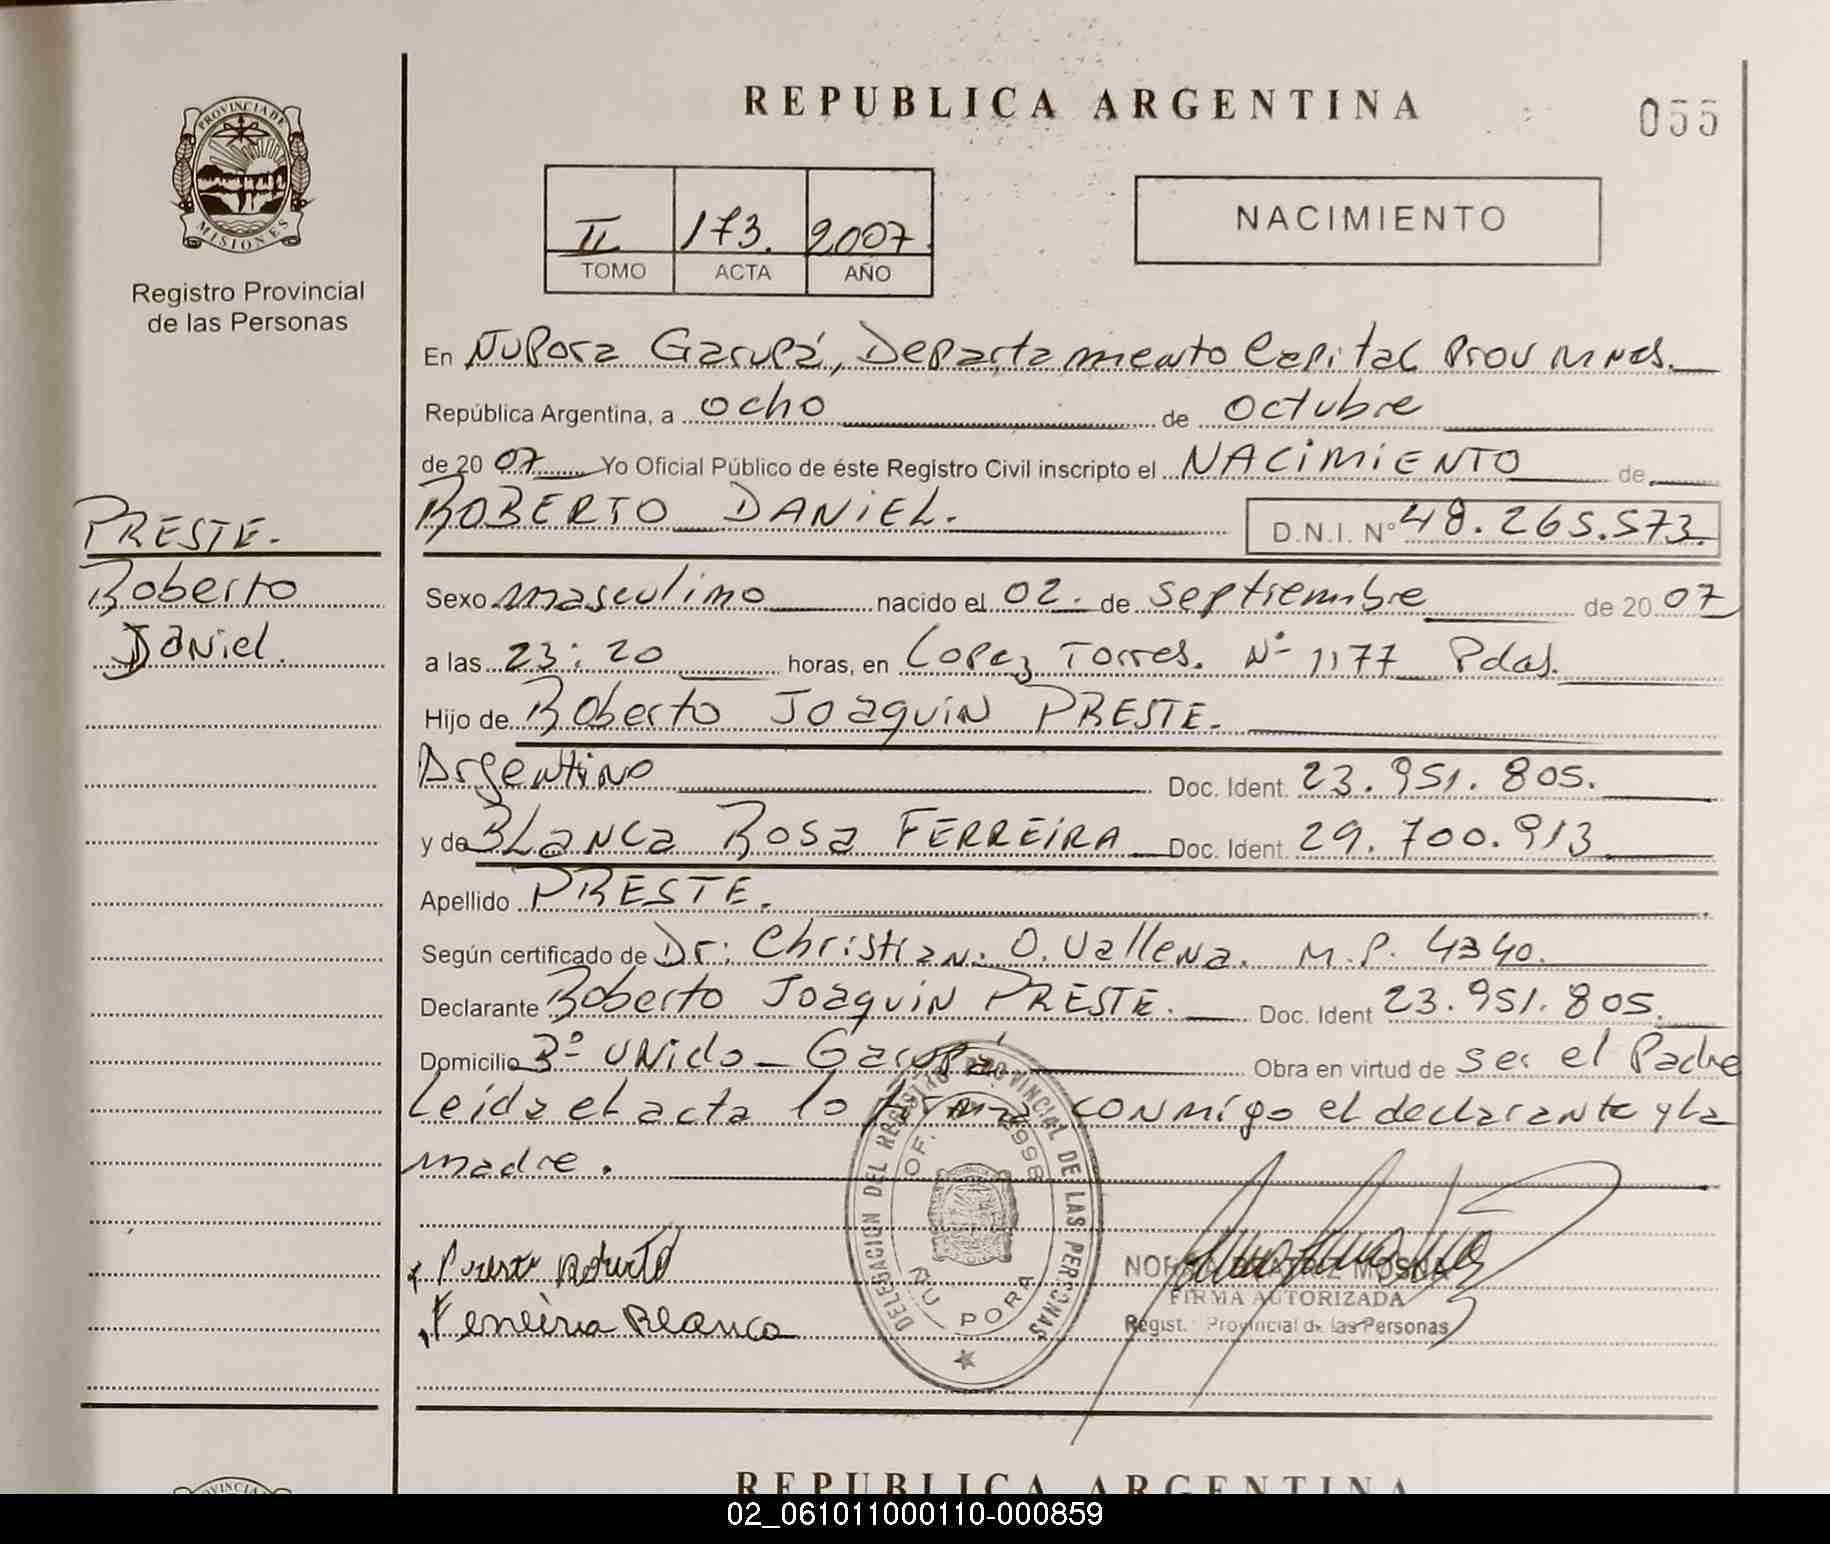 REPUBLICA ARGENTINA
055
PROVINCIA DE
MISIONES
Registro Provincial
de las Personas
II 173. 2007
TOMO ACTA AÑO
NACIMIENTO
En Ñu Pora Garupá, Departamento Capital Prov Mnes.
República Argentina, a ocho de octubre
de 2007 Yo Oficial Público de éste Registro Civil inscripto el NACIMIENTO de
ROBERTO DANIEL.
D.N.I. N° 48.265.573.
PRESTE.
Roberto
Daniel.
Sexo masculino nacido el 02. de septiembre de 2007
a las 23:20 horas, en Lopez Torres. Nº 1177 Pdas.
Hijo de Roberto Joaquin PRESTE.
Argentino Doc. Ident. 23.951.805.
y de BLanca Rosa FERREIRA Doc. Ident. 29.700.913
Apellido PRESTE.
Según certificado de Dr: Christian. O. Vallena. M.P. 4340.
Declarante Roberto Joaquin PRESTE. Doc. Ident 23.951.805.
Domicilio Bº Unido - Garupá Obra en virtud de ser el Padre
Leida el acta lo firma conmigo el declarante y La
madre.
DELEGACION DEL REGISTRO PROVINCIAL DE LAS PERSONAS
OF. 2998
ÑU PORA
Preste Roberto
Ferreira Blanca
FIRMA AUTORIZADA
Regist. Provincial de las Personas
REPUBLICA ARGENTINA
02_061011000110-000859